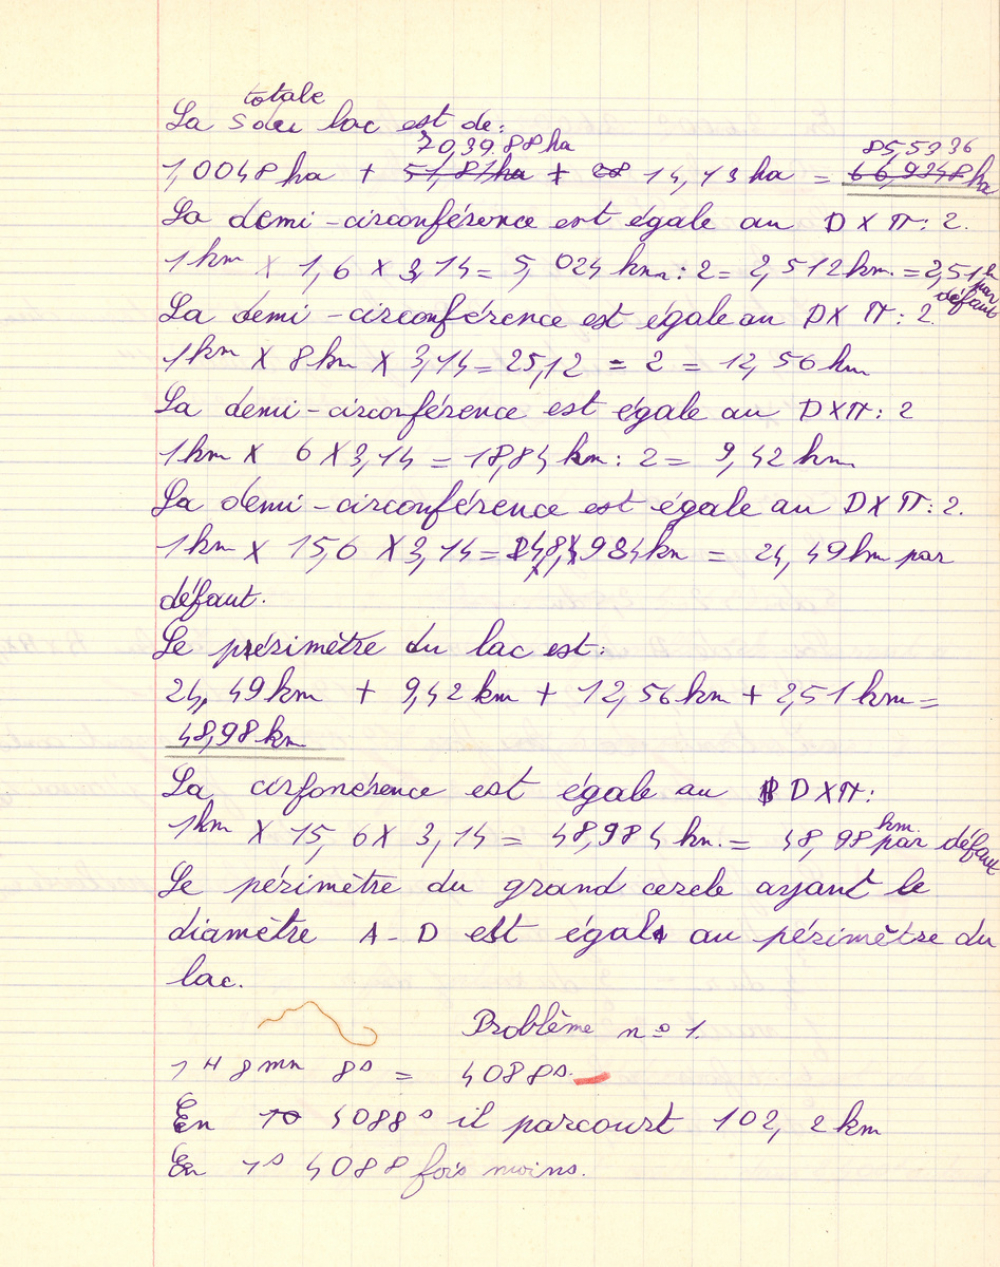 totale
La S du lac est de:
70,39.88 ha 85,5236
1,0048 ha + 51,81 ha + 14,13 ha = 66,9348 ha
La demi-circonférence est égale au D X π: 2.
1 km X 1,6 X 3,14 = 5,024 km: 2 = 2,512 km. = 2,51 par défaut
La demi-circonférence est égale au D X π: 2.
1 km X 8 km X 3,14 = 25,12 = 2 = 12,56 km
La demi-circonférence est égale au D X π: 2
1 km X 6 X 3,14 = 18,84 km: 2 = 9,42 km
La demi-circonférence est égale au D X π: 2.
1 km X 15,6 X 3,14 = 48,984 km = 24,49 km par
défaut.
Le périmètre du lac est:
24,49 km + 9,42 km + 12,56 km + 2,51 km =
48,98 km
La cirfonérence est égale au D X π:
1 km X 15,6 X 3,14 = 48,984 km. = 48,98 km. par défaut
Le périmètre du grand cercle ayant le
diamètre A-D est égal au périmètre du
lac.
Problème n° 1.
1 H 8 mn 8s = 4088s.
En 4088s il parcourt 102,2 km
En 1s 4088 fois moins.